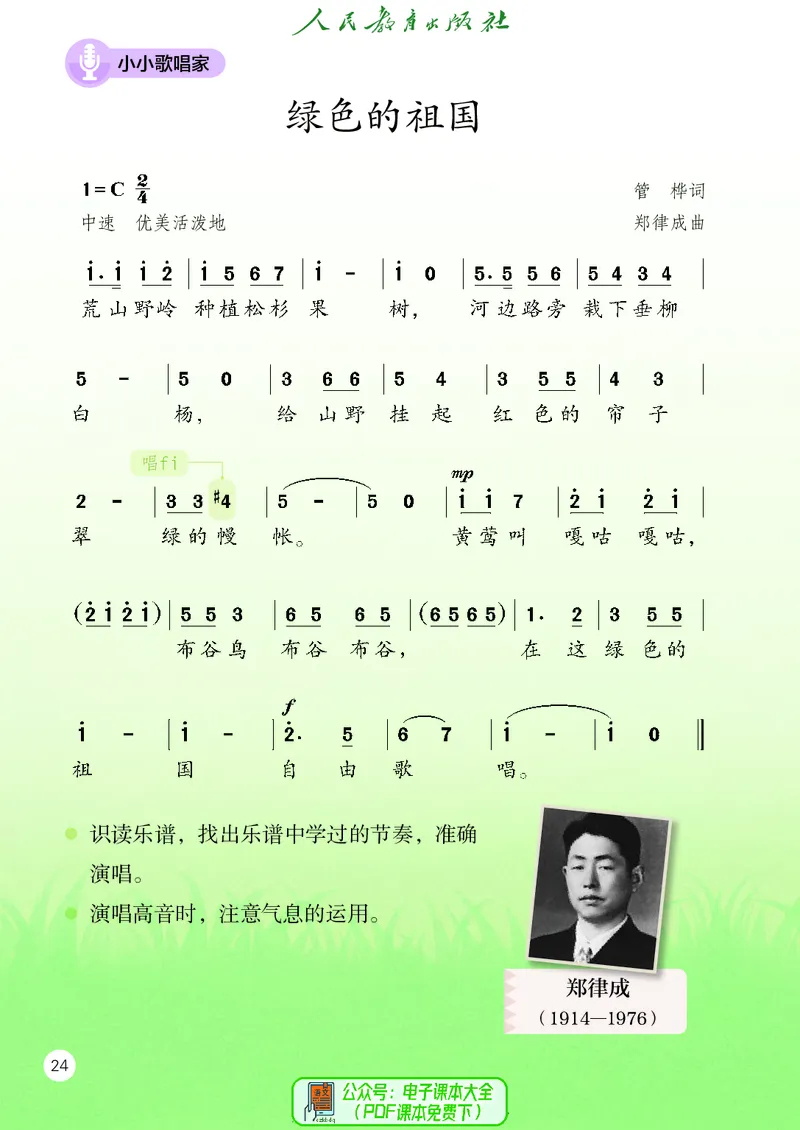 人民教育出版社
小小歌唱家
绿色的祖国
1=C 2/4
管 桦词
中速 优美活泼地
郑律成曲
i. i i 2̇ | i 5 6 7 | i - | i 0 | 5. 5 5 6 | 5 4 3 4 |
荒山野岭 种植松杉 果 树， 河边路旁 栽下垂柳
5 - | 5 0 | 3 6 6 | 5 4 | 3 5 5 | 4 3 |
白 杨， 给 山野 挂 起 红 色的 帘 子
唱fi
mp
2 - | 3 3 #4 | 5 - | 5 0 | i i 7 | 2̇ i 2̇ i |
翠 绿的幔 帐。 黄莺叫 嘎咕 嘎咕，
(2̇ i 2̇ i) | 5 5 3 | 6 5 6 5 | (6 5 6 5) | 1. 2 | 3 5 5 |
布谷鸟 布谷 布谷， 在 这 绿 色的
f
i - | i - | 2̇. 5 | 6 7 | i - | i 0 ‖
祖 国 自 由 歌 唱。
● 识读乐谱，找出乐谱中学过的节奏，准确
演唱。
● 演唱高音时，注意气息的运用。
郑律成
（1914—1976）
24
语文
公众号：电子课本大全
（PDF课本免费下）